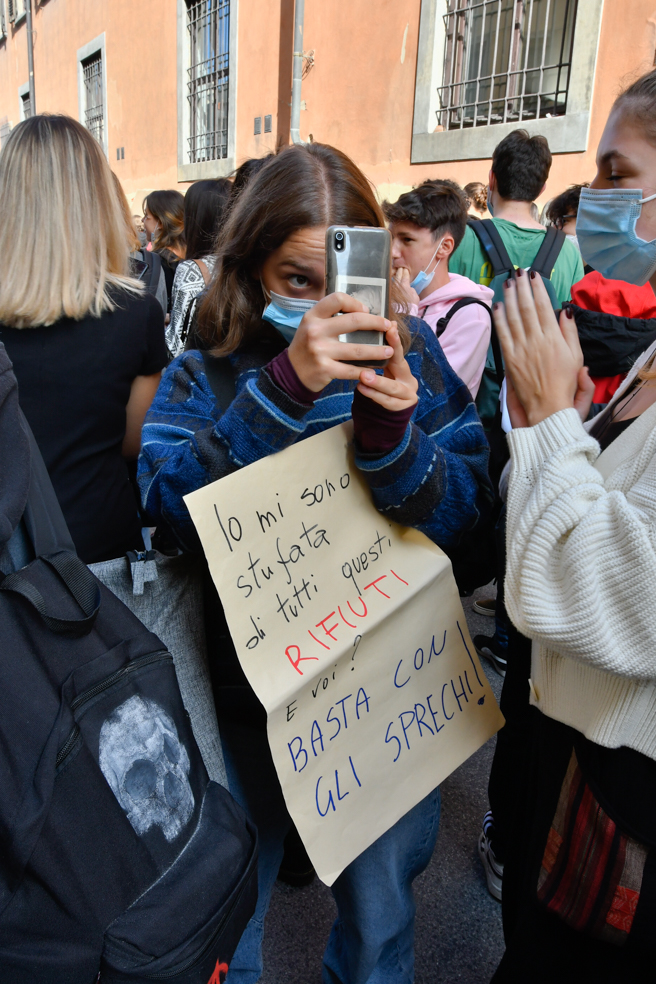 Io mi sono
stufata
di tutti questi
RIFIUTI
E voi?
BASTA CON
GLI SPRECHI!